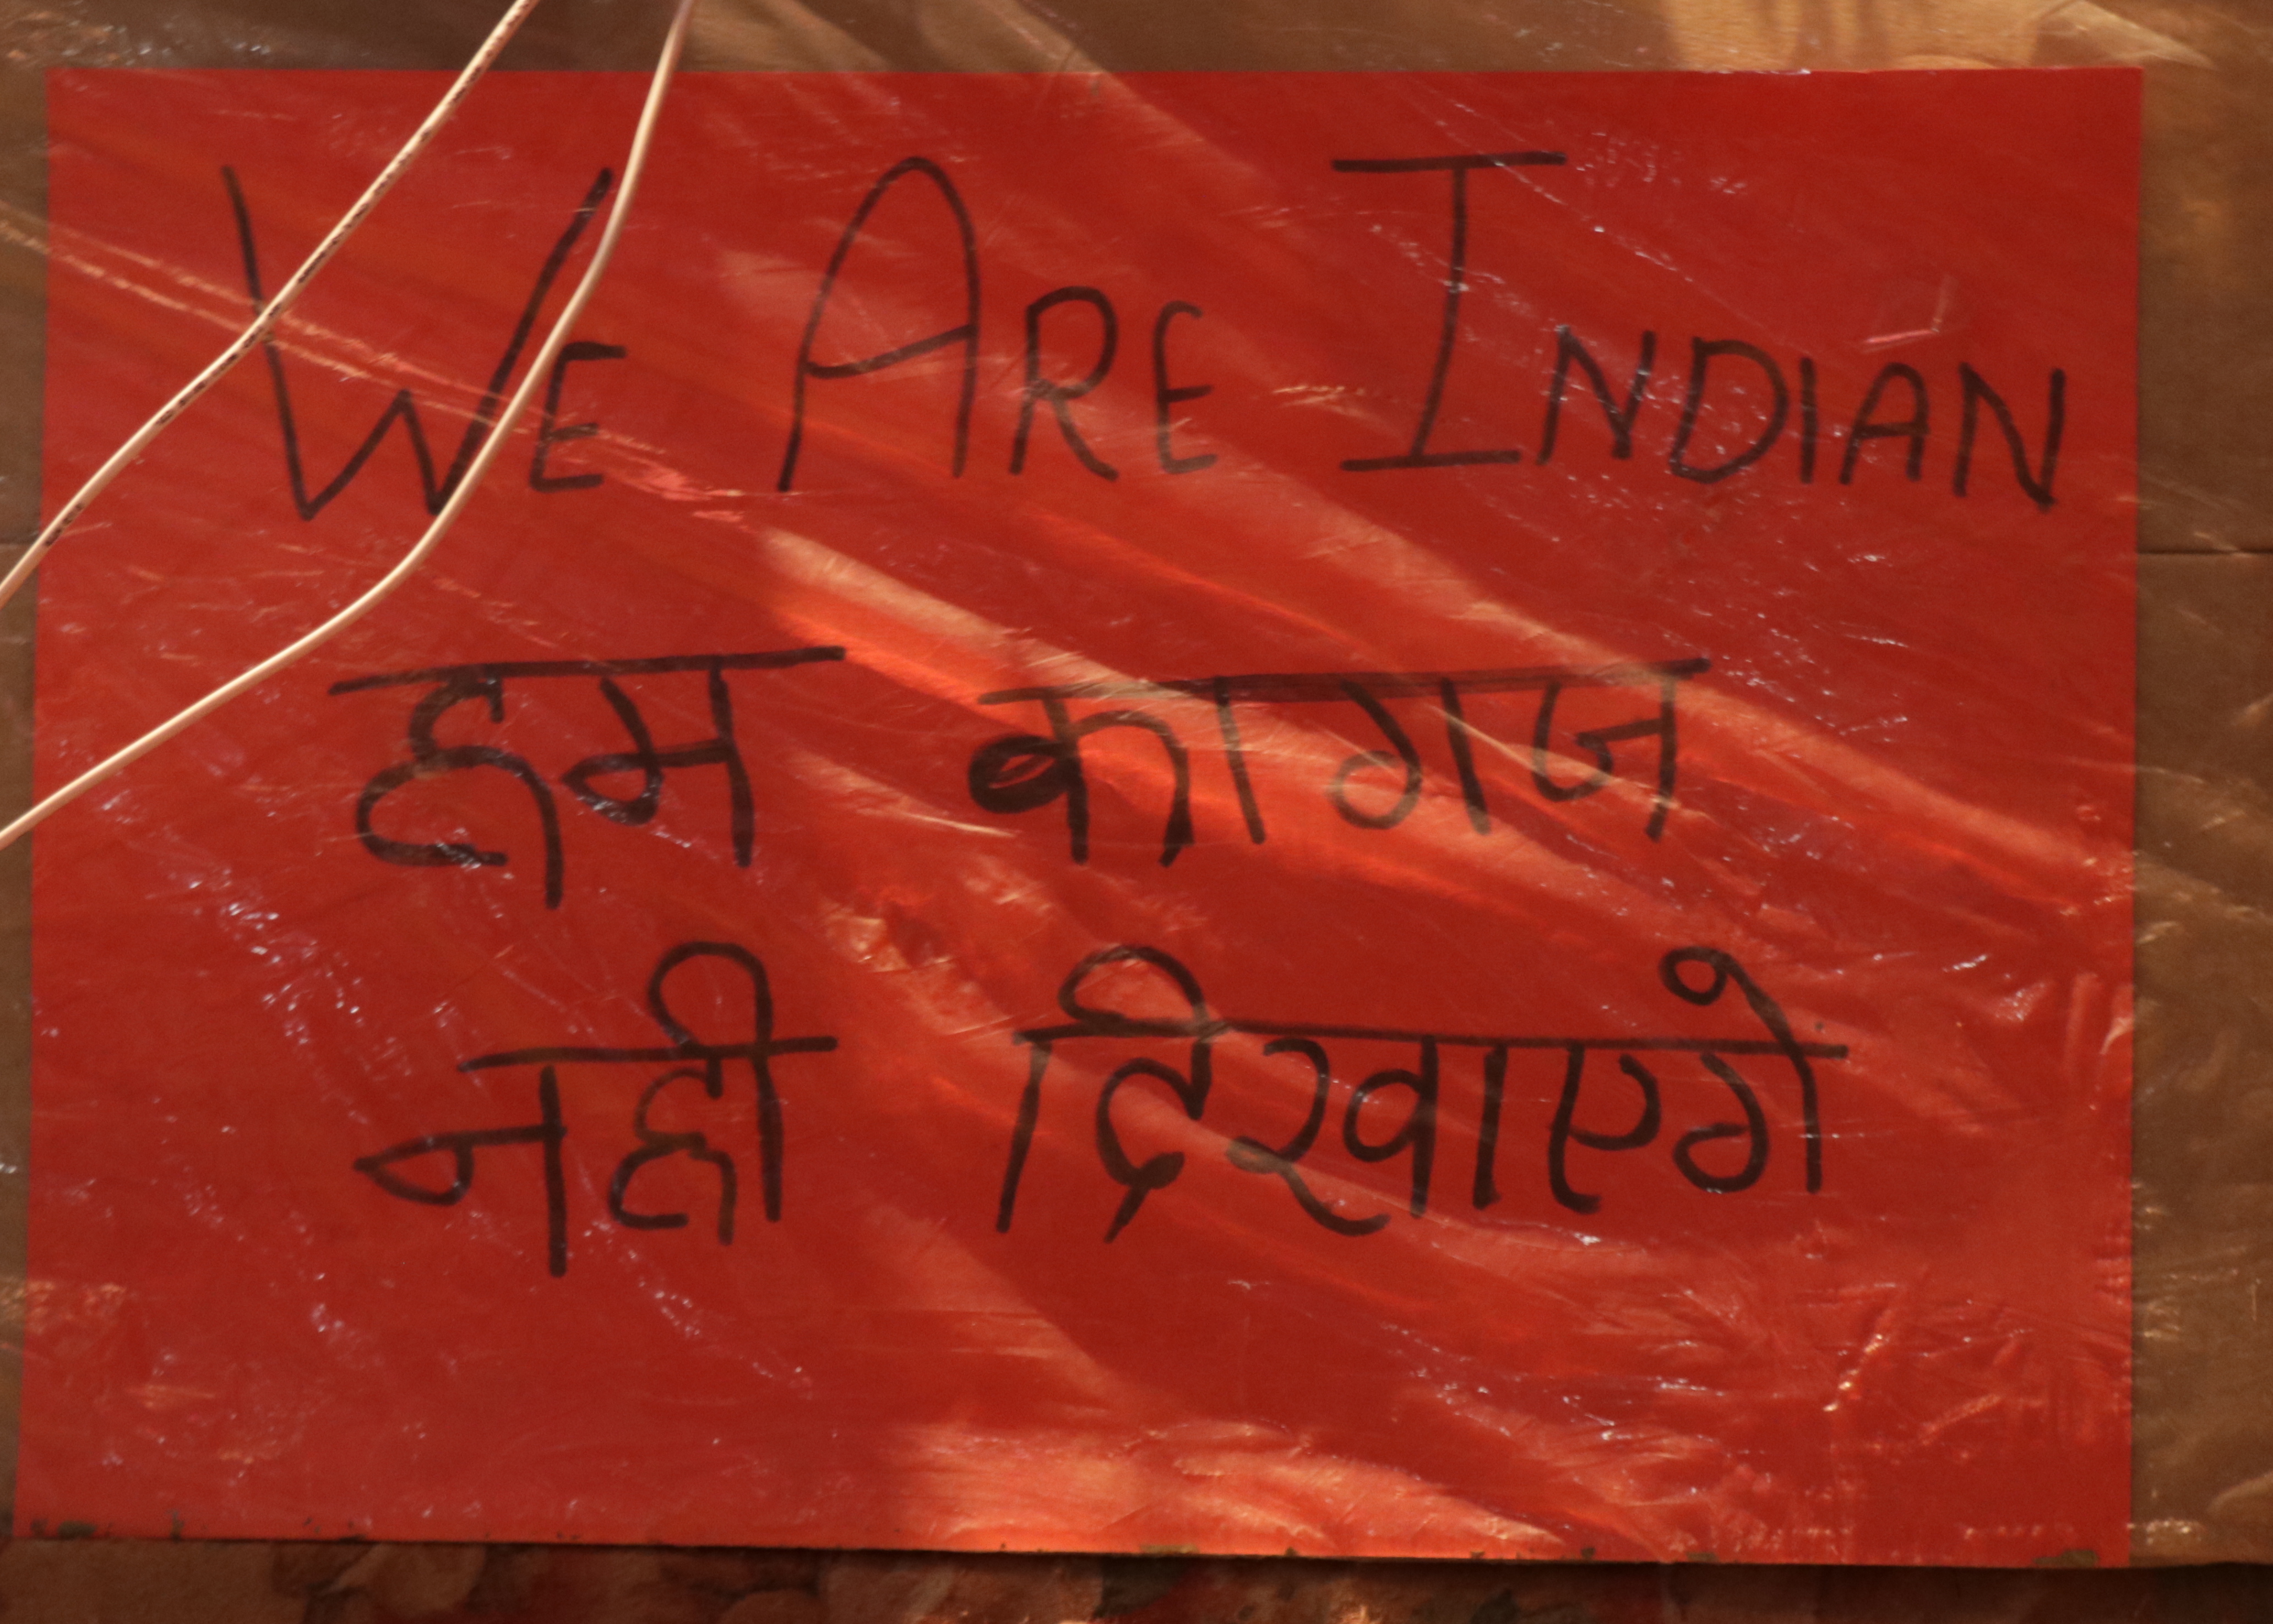 WE ARE INDIAN
हम कागज
नही दिखाएगे